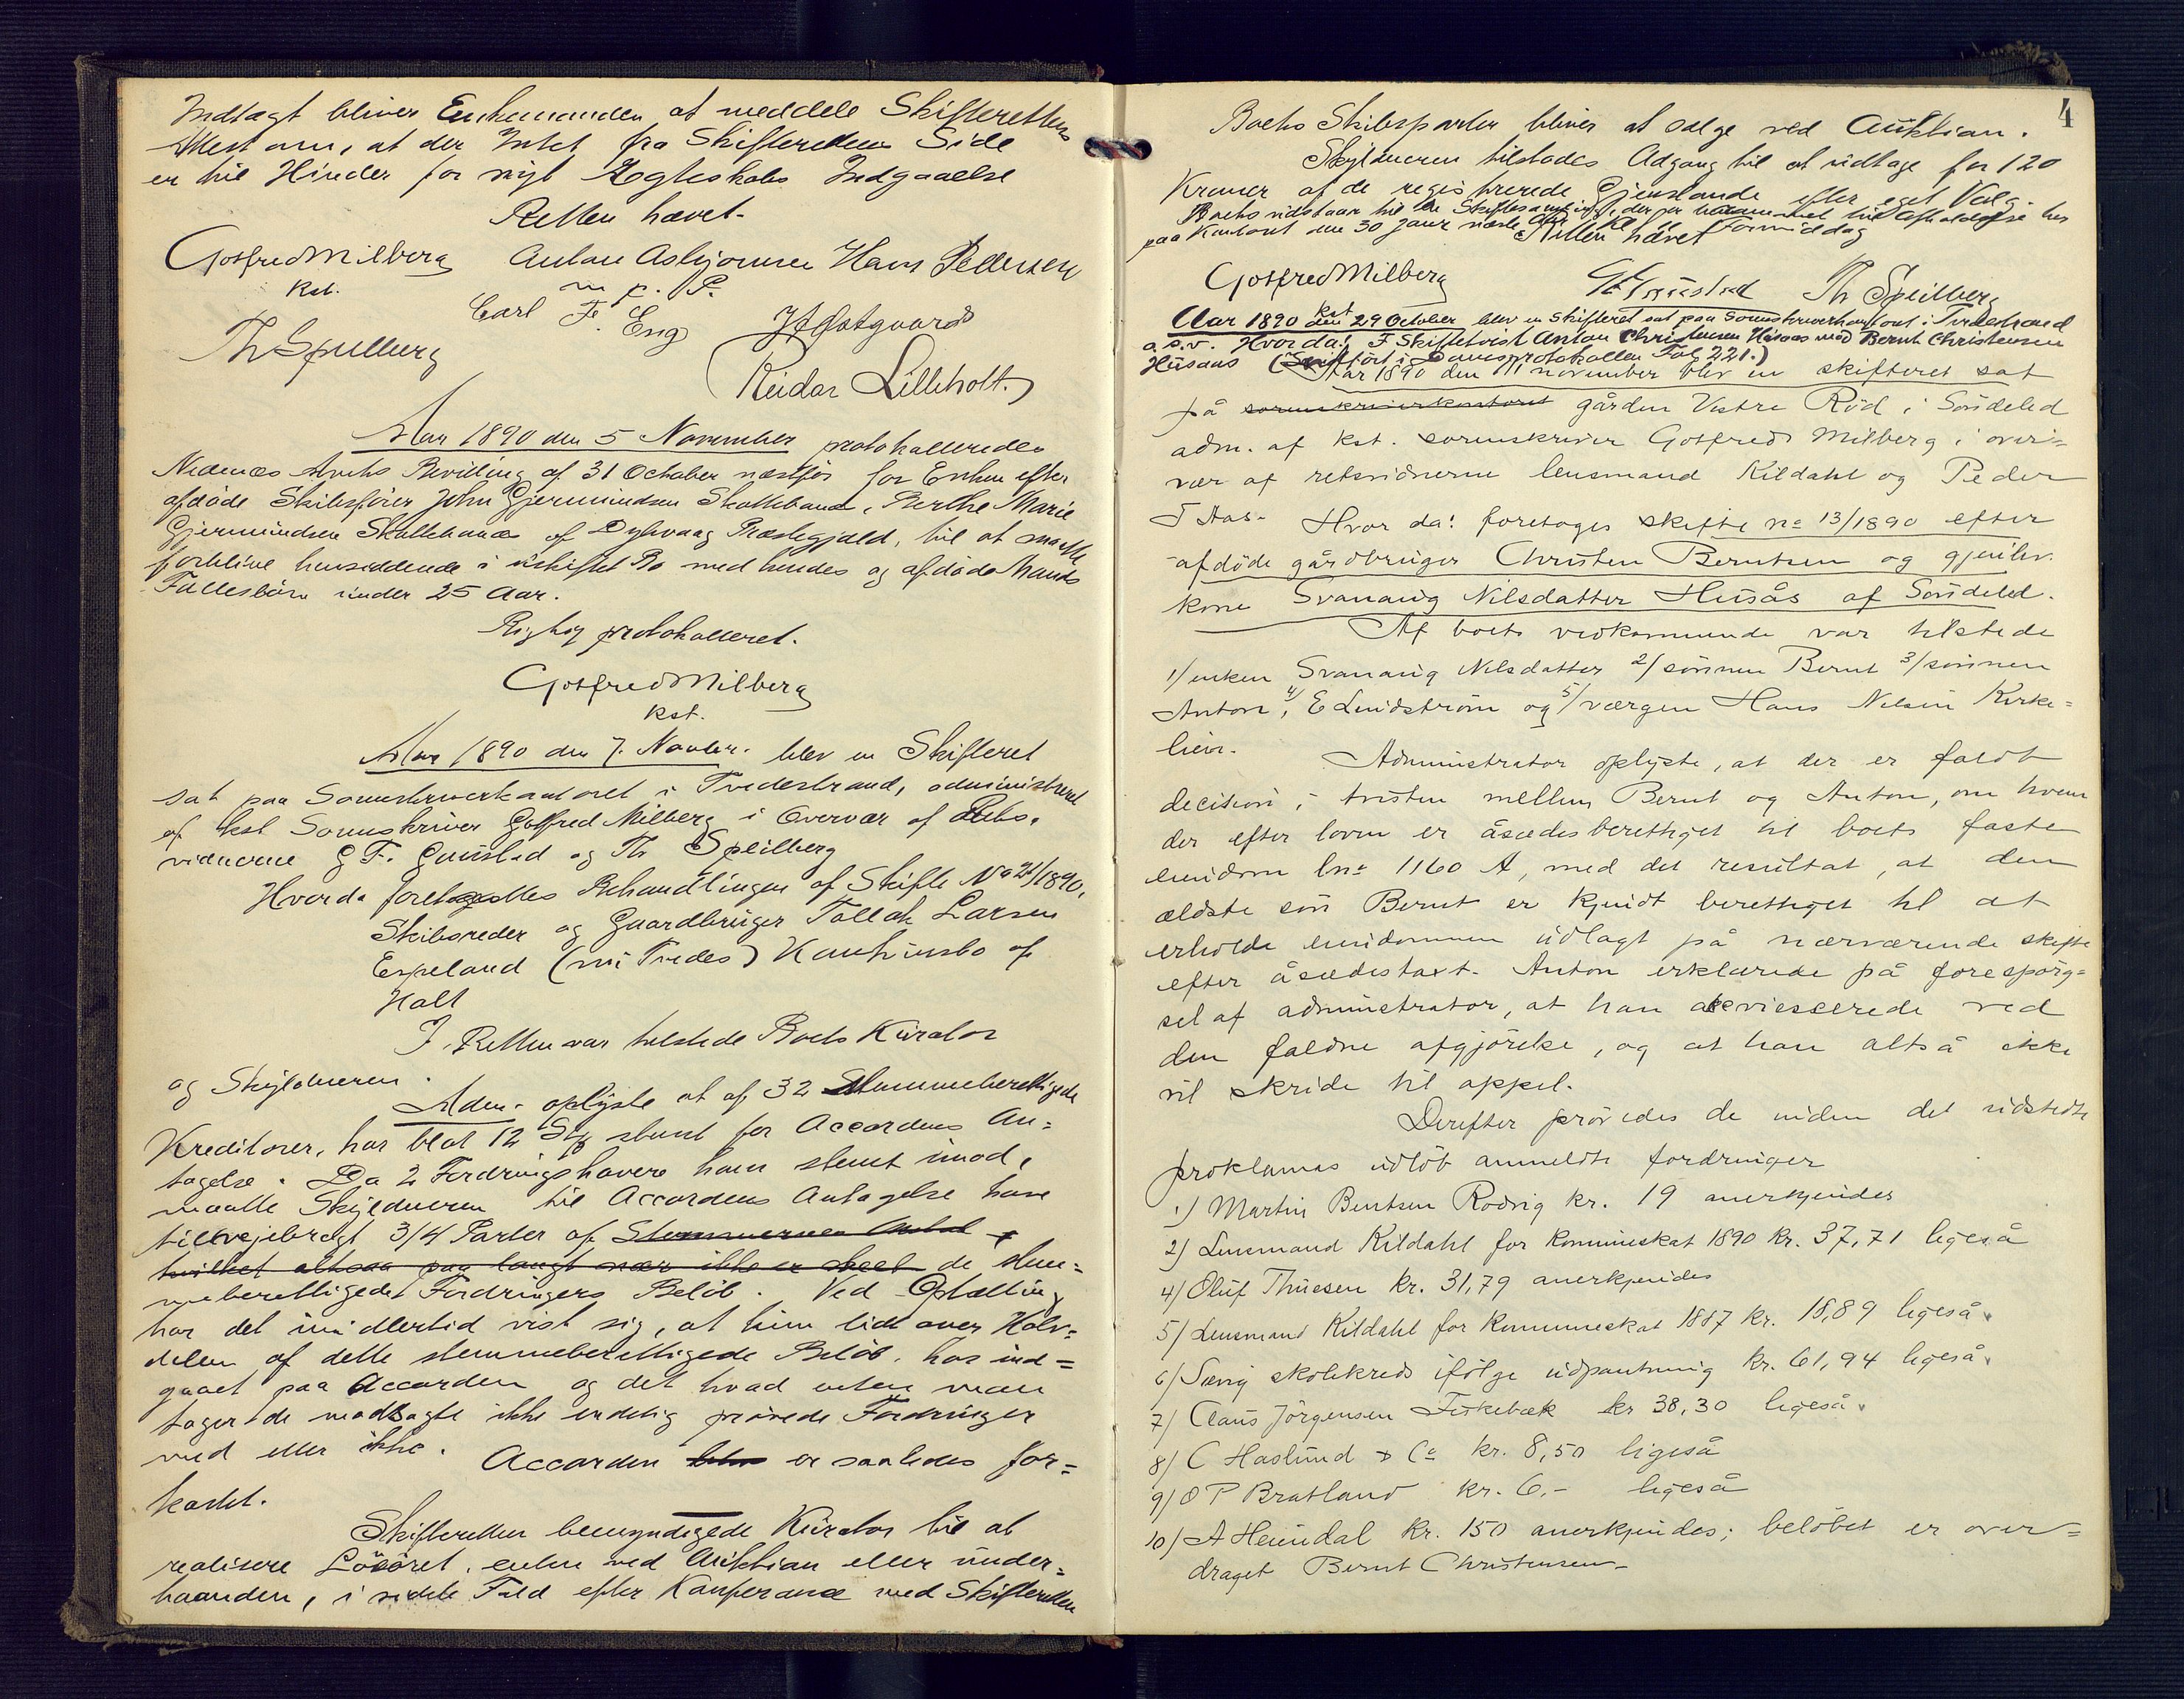 Indtægt bliver Enkemanden at meddele Skifterettens
Attest om, at der Intet fra Skifterettens Side
er til Hinder for nyt Ægteskabs Indgaaelse
Retten hævet.
Gotfred Milberg Anton Asbjørnsen Hans Pedersen
Kst. m. p. P.
Carl F. Eng
Th Speilberg
(Reidar Lilleholt.)
Aar 1890 den 5 November protokolleredes
Nedenæs Amts Bevilling af 31 October næstfør for Enken efter
afdøde Skibsfører John Gjermundsen Skattebane, Berthe Marie
Gjermundsen af Dybvaag Præstegjæld, til at maatte
forblive hensiddende i uskiftet Bo med hendes og afdøde Mands
Fællesbørn under 25 Aar.
Rigtig protokolleret.
Gotfred Milberg
Kst.
Aar 1890 den 7. Novbr. blev en Skifteret
sat paa Sorenskriverkontoret i Tvedestrand, administreret
af kst Sorenskriver Gotfred Milberg i Overvær af Rets-
vidnerne G F. Gaustad og Th Speilberg
Hvorda foretoges Behandlingen af Skifte No 21/1890,
Skibsreder og Gaardbruger Tallak Larsen
Espeland (nu Tvedes) Konkursbo af
Holt
I Retten var tilstede Boets Kurator
og Skyldneren.
Adm. oplyste at af 32 Stemmeberettigede
Kreditorer, har blot 12 Stk stemt for Accordens An=
tagelse. Da 2 Fordringshavere have stemt imod,
maatte Skyldneren til Accordens Antagelse have
tilvejebragt 3/4 Parter af Stemmernes Antal
hvilket altsaa paa langt nær ikke er skeet de stem=
meberettigedes Fordringers Beløb. Ved Optælling
har det imidlertid vist sig, at kun lidt over Halv=
delen af dette stemmeberettigede Beløb, har ind=
gaaet paa Accorden og det hvad enten man
tager de modsagte ikke endelig prøvede Fordringer
med eller ikke. Accorden blev er saaledes for=
kastet.
Skifteretten bemyndigede Kurator til at
realisere Løsøret, enten ved Auktion eller under=
haanden, i sidste Fald efter Konferance med Skifteretten
4
Boets Skibsparter bliver at sælge ved Auktion.
Skyldneren tilstedes Adgang til at udtage for 120
Kroner af de registrerede Gjenstande efter eget Valg.
Boets udstaar til en Skiftesamling, der er berammet til Afholdelse her
paa Kontoret den 30 Janr næste Aar Kl Formiddag
Retten hævet
Gotfred Milberg G F Gaustad Th Speilberg
kst
Aar 1890 den 29 October blev en Skifteret sat paa Sorenskriverkontoret i Tvedestrand
o.s.v. Hvor da: F Skiftetvist Anton Christensen Husaas mod Bernt Christensen
Husaas (indført i Domsprotokollen Fol 221.)
Aar 1890 den 11 november blev en skifteret sat
på sorenskriverkontoret gården Vestre Röd i Söndeled
adm. af kst. sorenskriver Gotfred Milberg i over=
vær af retsvidnerne lensmand Kildahl og Peder
T Aas. Hvor da: foretoges skifte no 13/1890 efter
afdöde gårdbruger Christen Berntsen og gjenlev.
kone Svanaug Nilsdatter Husås af Söndeled.
Af boets vedkommende var tilstede
1/ enken Svanaug Nilsdatter 2/ sönnen Bernt 3/ sönnen
Anton, 4/ E Lindström og 5/ værgen Hans Nilsen Kirke=
lien.
Administrator oplyste, at der er faldt
decision i tvisten mellem Bernt og Anton, om hvem
der efter loven er åsædesberettiget til boets faste
eiendom lno 1160 A, med det resultat, at den
ældste sön Bernt er kjendt berettiget til at
erholde eiendommen udlagt på nærværende skifte
efter åsædestaxt. Anton erklærede på forespörg=
sel af administrator, at han akviescerede ved
den faldne afgjörelse, og at han altså ikke
vil skride til appel.
Derefter prövedes de inden det udstedte
proklamas udlöb anmeldte fordringer
1) Martin Bentsen Rödvig kr. 19 anerkjendes
2) Lensmand Kildahl for kommuneskat 1890 kr. 37,71 ligeså
4) Oluf Thuesen kr. 31,79 anerkjendes
5/ Lensmand Kildahl for kommuneskat 1887 kr. 18,89 ligeså.
6/ Sævig skolekreds ifölge udpantning kr. 61,94 ligeså.
7/ Claus Jörgensen Fiskebæk kr 38,30 ligeså.
8/ C Haslund & Co kr. 8,50 ligeså
9/ O P Bratland kr. 6.- ligeså
10) A Heimdal kr. 150 anerkjendes; belöbet er over=
draget Bernt Christensen